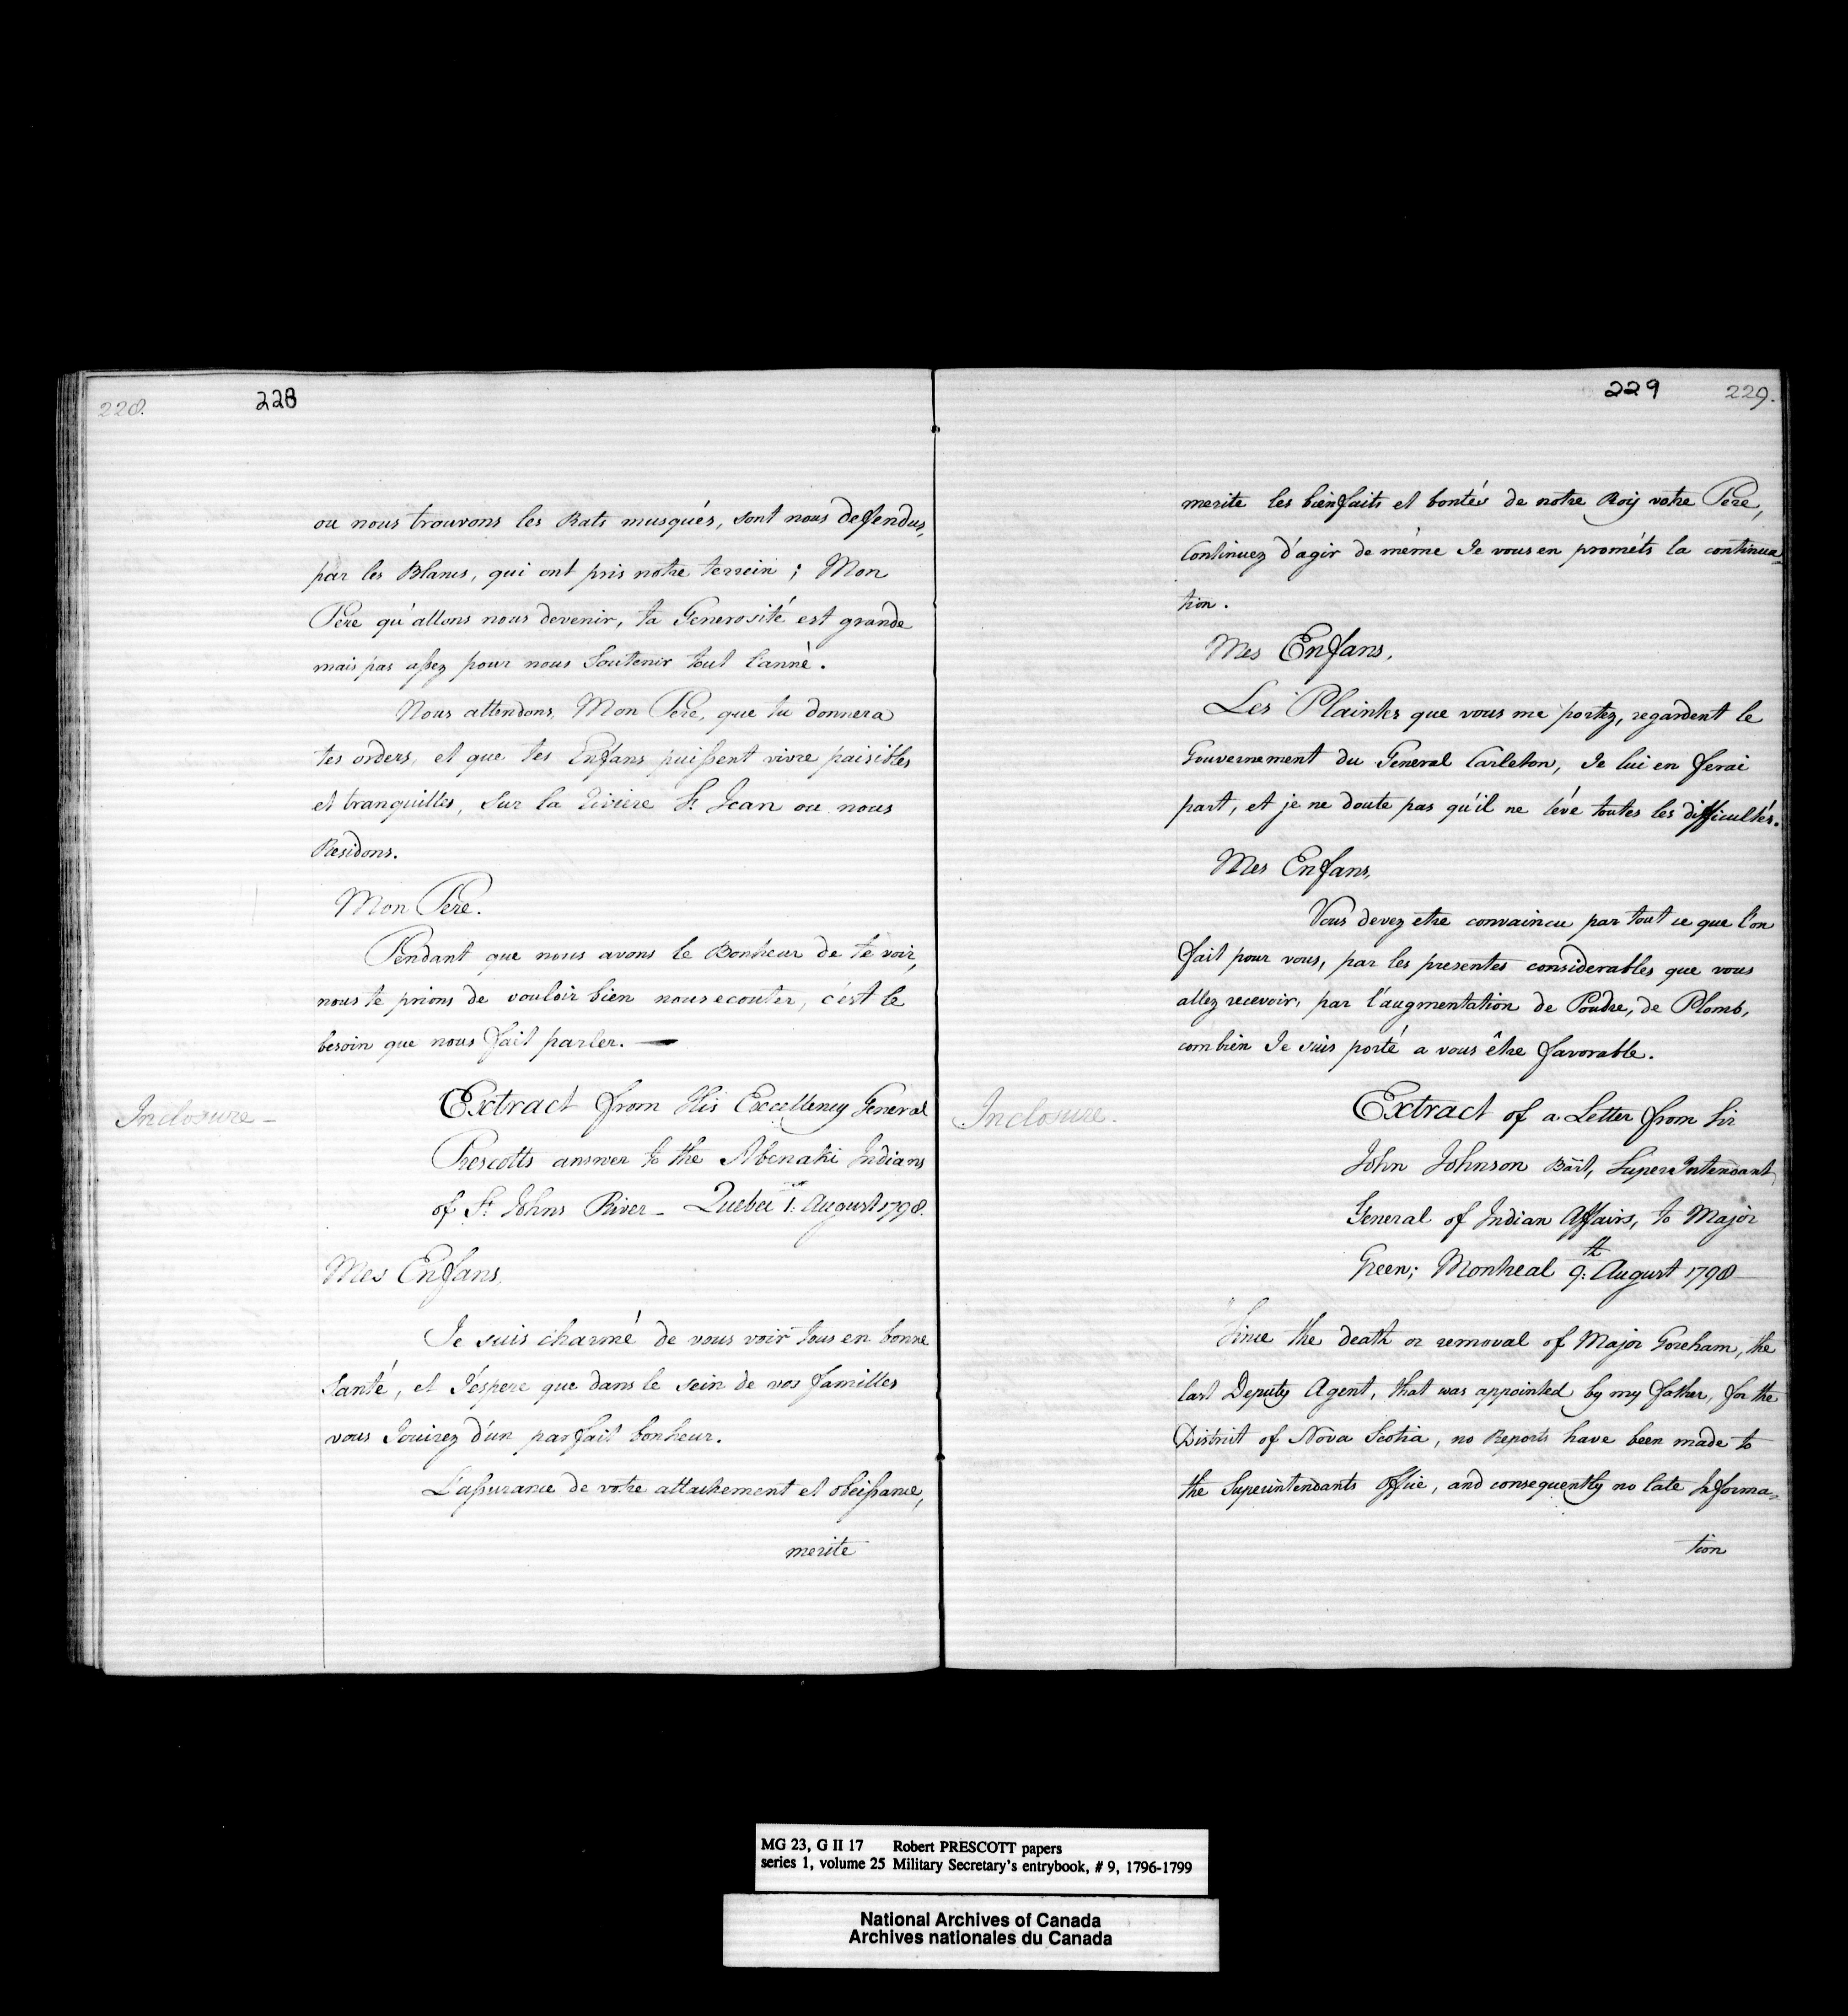 228. 228
ou nous trouvons les Rats musqués, sont nous deffendus,
par les Blancs, qui ont pris notre terrein ; Mon
Pere qu'allons nous devenir, ta Generosité est grande
mais pas assez pour nous Soutenir tout l'annè.
Nous attendons, Mon Pere, que tu donnera
tes orders, et que tes Enfans puissent vivre paisibles
et tranquilles, Sur la Riviere St Jean ou nous
Residons.
Mon Pere.
Pendant que nous avons le Bonheur de te voir,
nous te prions de vouloir bien nous ecouter, c'est le
besoin que nous fait parler. —
Inclosure –
Extract from His Excellency General
Prescotts answer to the Abenaki Indians
of St Johns River – Quebec 1st August 1798.
Mes Enfans,
Je suis charmé de vous voir tous en bonne
Santé, et J'éspere que dans le sein de vos familles
vous Jouirez d'un parfait bonheur.
L'assurance de votre attachement et obeissance,
merite
229 229.
merite les bienfaits et bontés de notre Roy votre Pere,
Continuez d'agir de méme Je vous en prométs la continua-
tion.
Mes Enfans,
Les Plaintes que vous me portez, regardent le
Gouvernement du General Carleton, Je lui en ferai
part, et je ne doute pas qu'il ne léve toutes les difficultés.
Mes Enfans,
Vous devez etre convaincu par tout ce que l'on
fait pour vous, par les presentes considerables que vous
allez recevoir, par l'augmentation de Poudre, de Plomb,
combien Je suis porté a vous être favorable.
Inclosure.
Extract of a Letter from Sir
John Johnson Bart, Super Intendant
General of Indian Affairs, to Major
Green; Montreal 9th August 1798 —
"Since the death or removal of Major Goreham, the
last Deputy Agent, that was appointed by my father, for the
District of Nova Scotia, no Reports have been made to
the Superintendants Office, and consequently no late Informa-
tion
MG 23, G II 17 Robert PRESCOTT papers
series 1, volume 25 Military Secretary's entrybook, # 9, 1796-1799
National Archives of Canada
Archives nationales du Canada